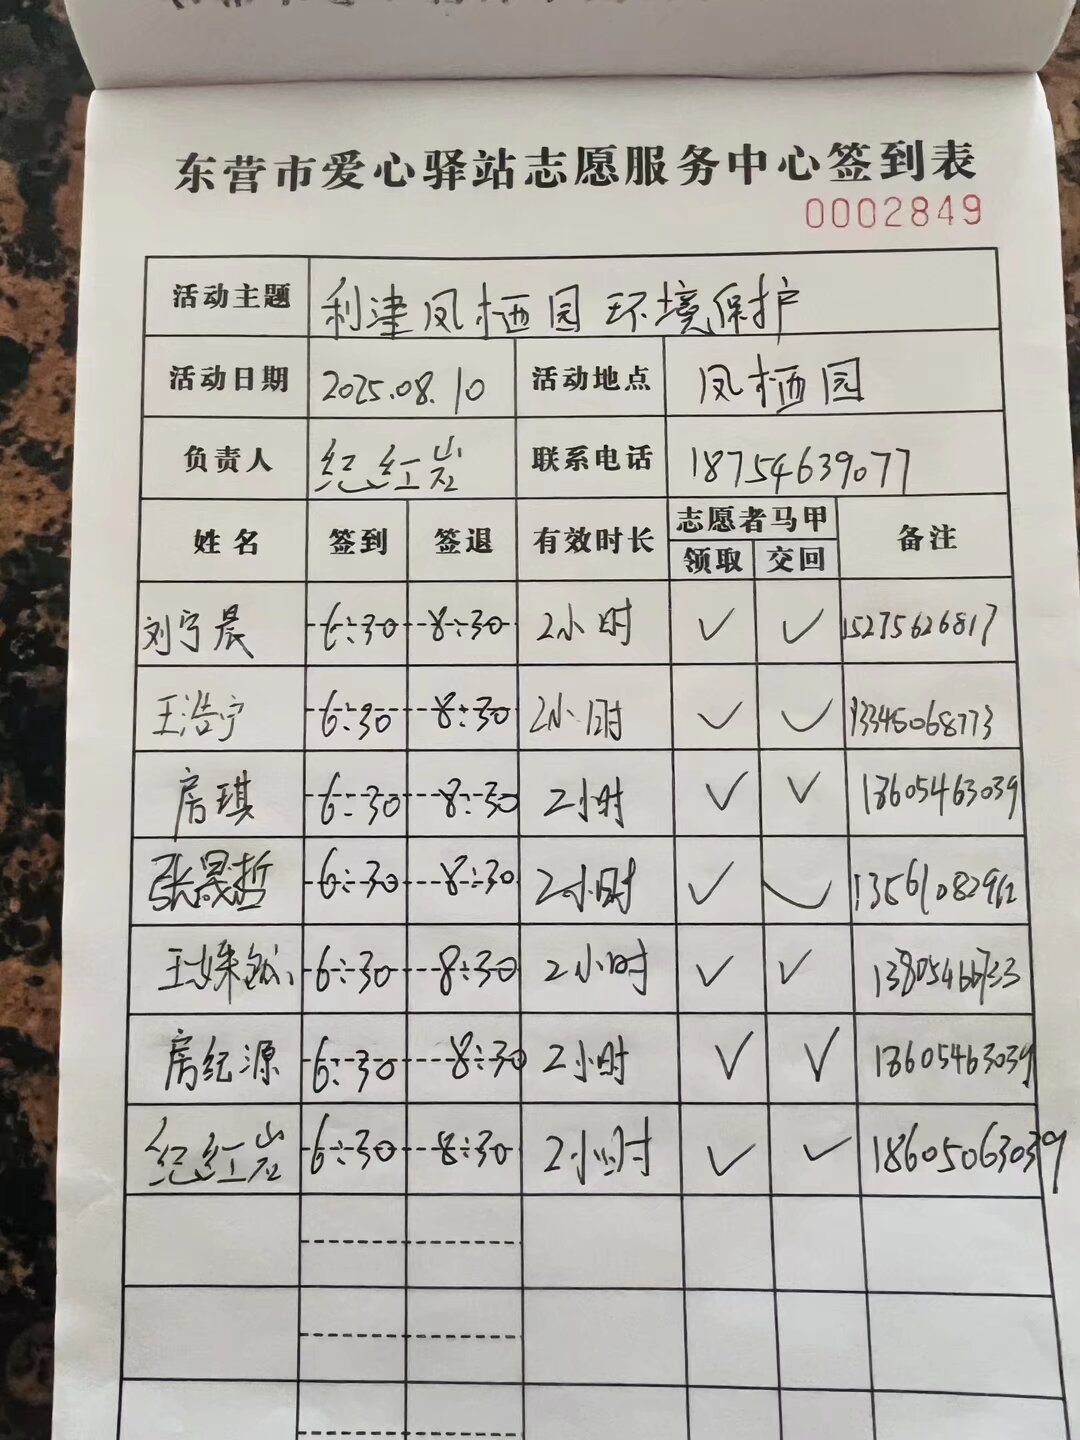 东营市爱心驿站志愿服务中心签到表
0002849
活动主题 利津凤栖园环境保护
活动日期 2025.08.10 活动地点 凤栖园
负责人 纪红岩 联系电话 18754639077
姓名 签到 签退 有效时长 志愿者马甲 备注
领取 交回
刘宁晨 6:30 8:30 2小时 ✓ ✓ 15275626817
王浩宁 6:30 8:30 2小时 ✓ ✓ 13345068773
房琪 6:30 8:30 2小时 ✓ ✓ 18605463039
张晟哲 6:30 8:30 2小时 ✓ ✓ 13561082962
王姝 6:30 8:30 2小时 ✓ ✓
房纪源 6:30 8:30 2小时 ✓ ✓ 18605463039
纪红岩 6:30 8:30 2小时 ✓ ✓ 18605063039